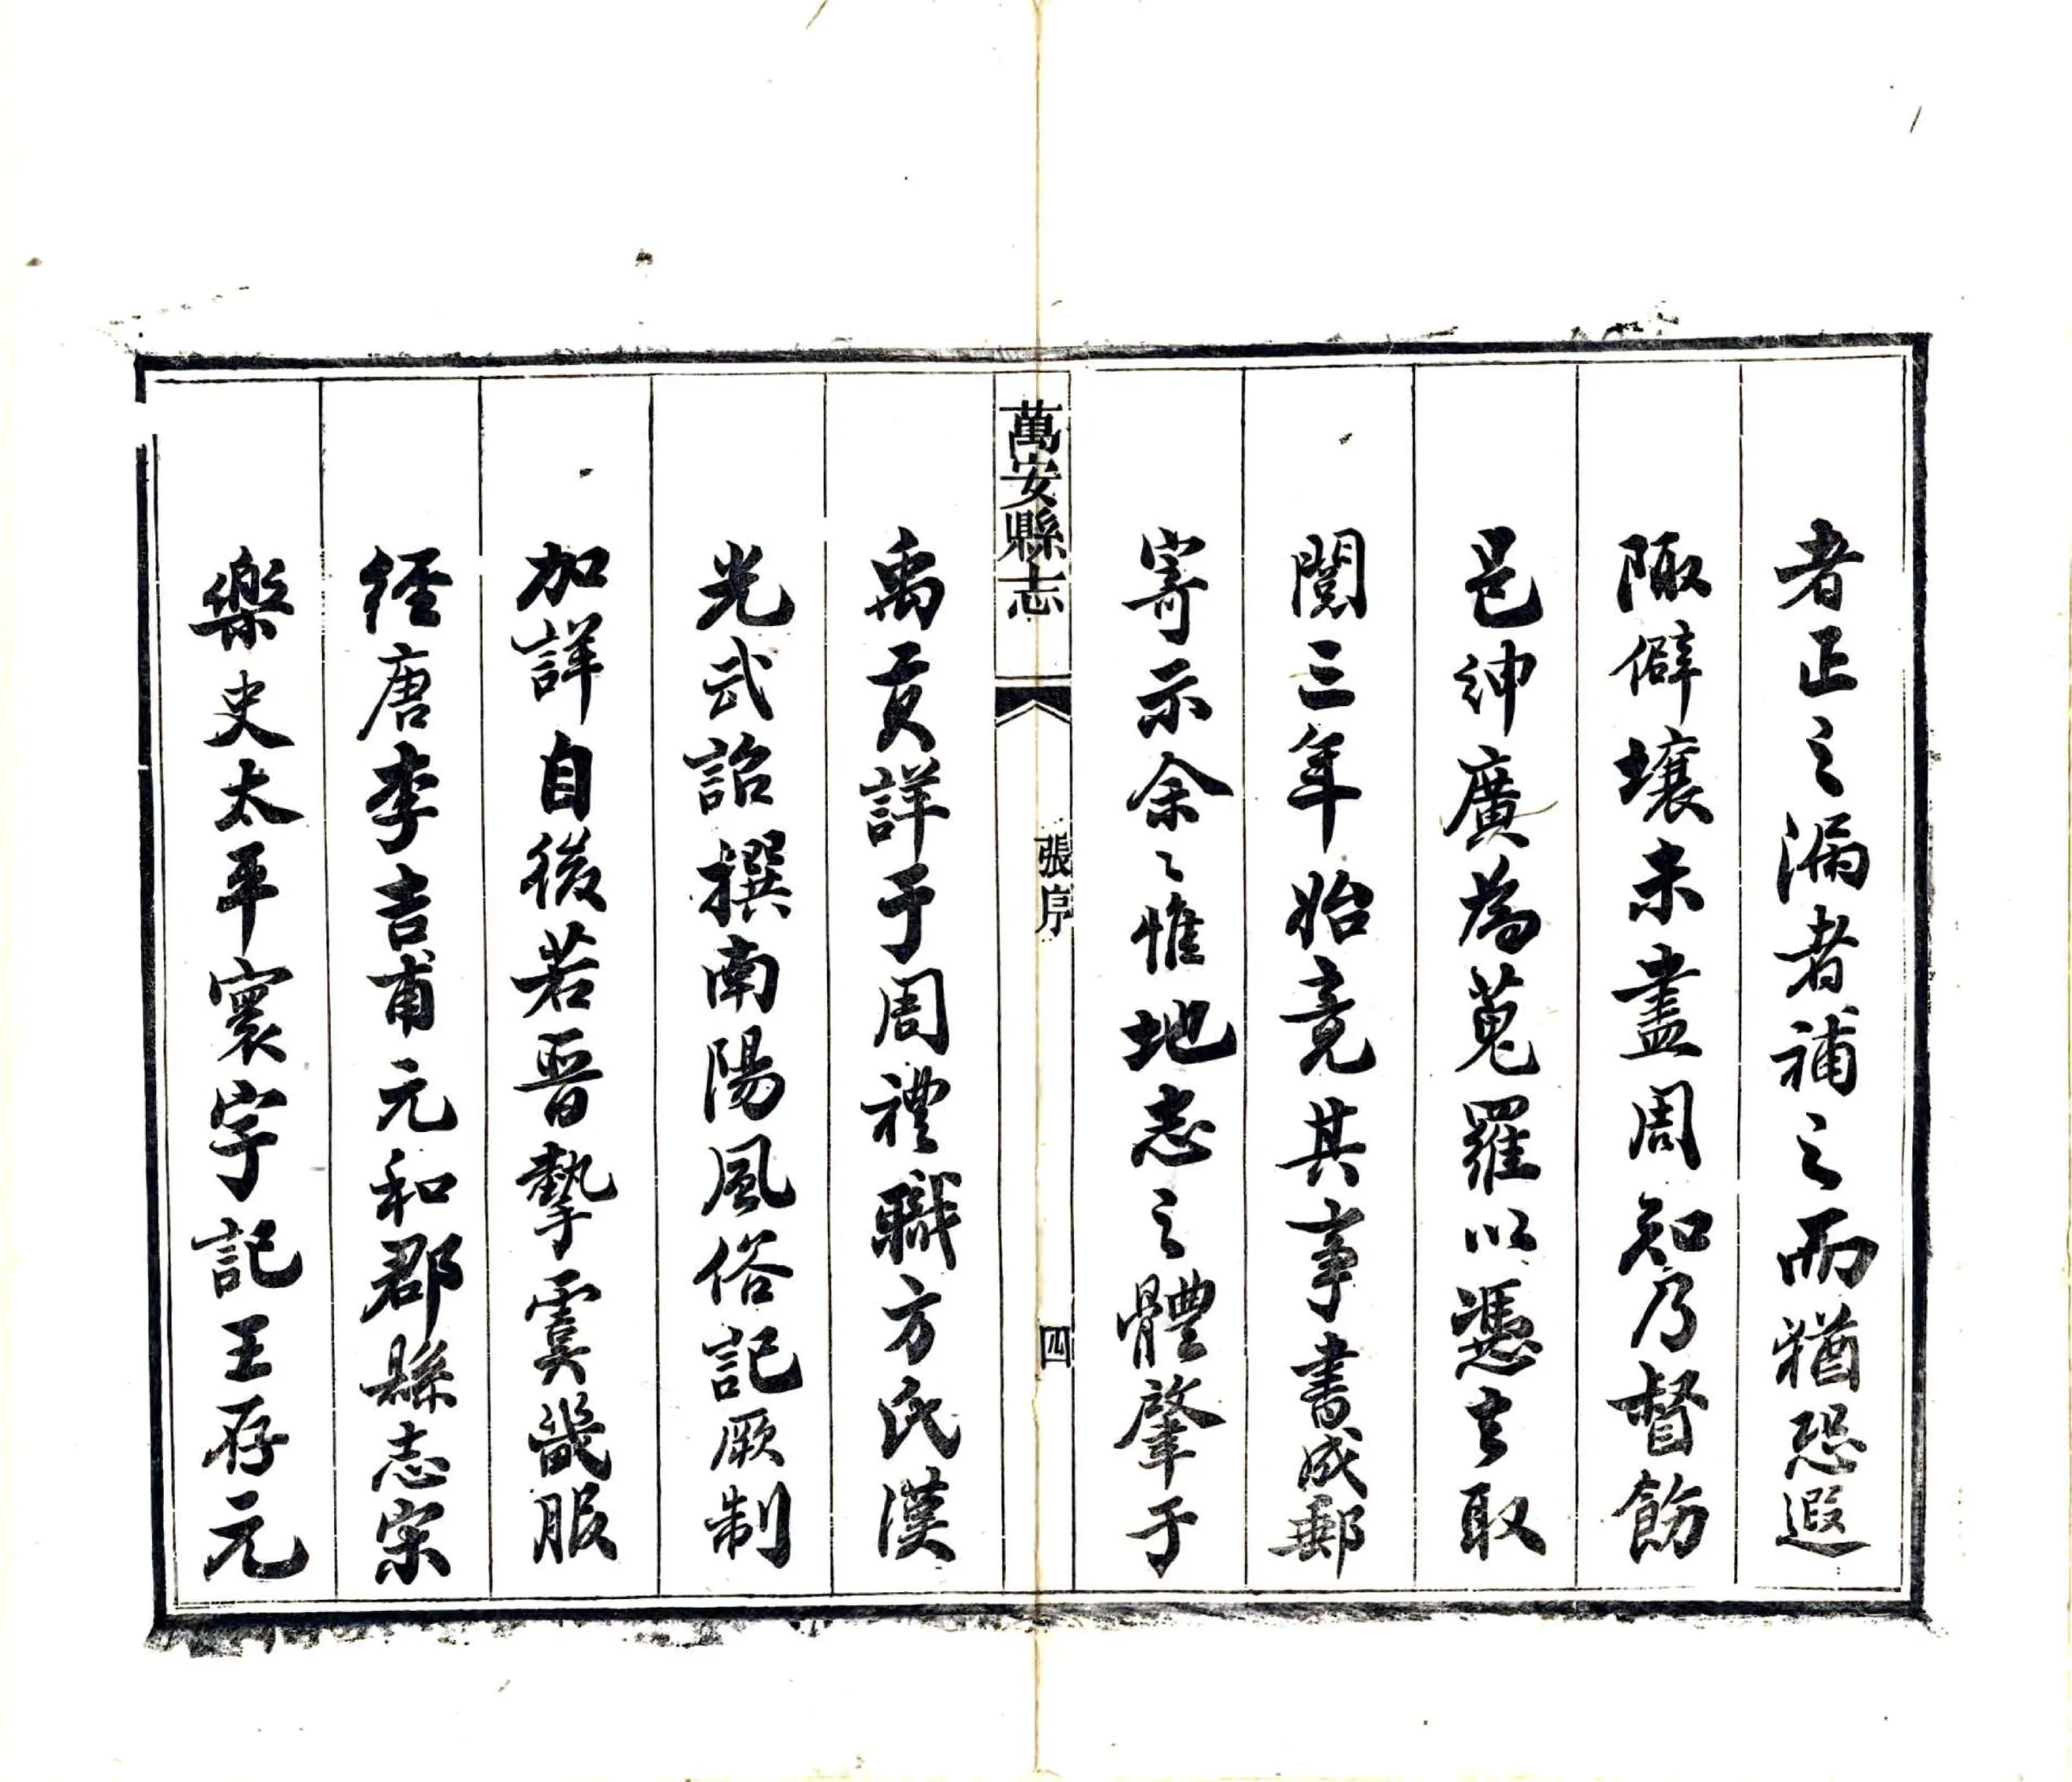 者正之漏者補之而猶恐遐
陬僻壤未盡周知乃督飭
邑紳廣為蒐羅以憑去取
閱三年始竟其事書成郵
寄示余〻惟地志之體肇于
萬安縣志
張序
四
禹貢詳于周禮職方氏漢
光武詔撰南陽風俗記厥制
加詳自後若晉摯虞畿服
經唐李吉甫元和郡縣志宋
樂史太平寰宇記王存元